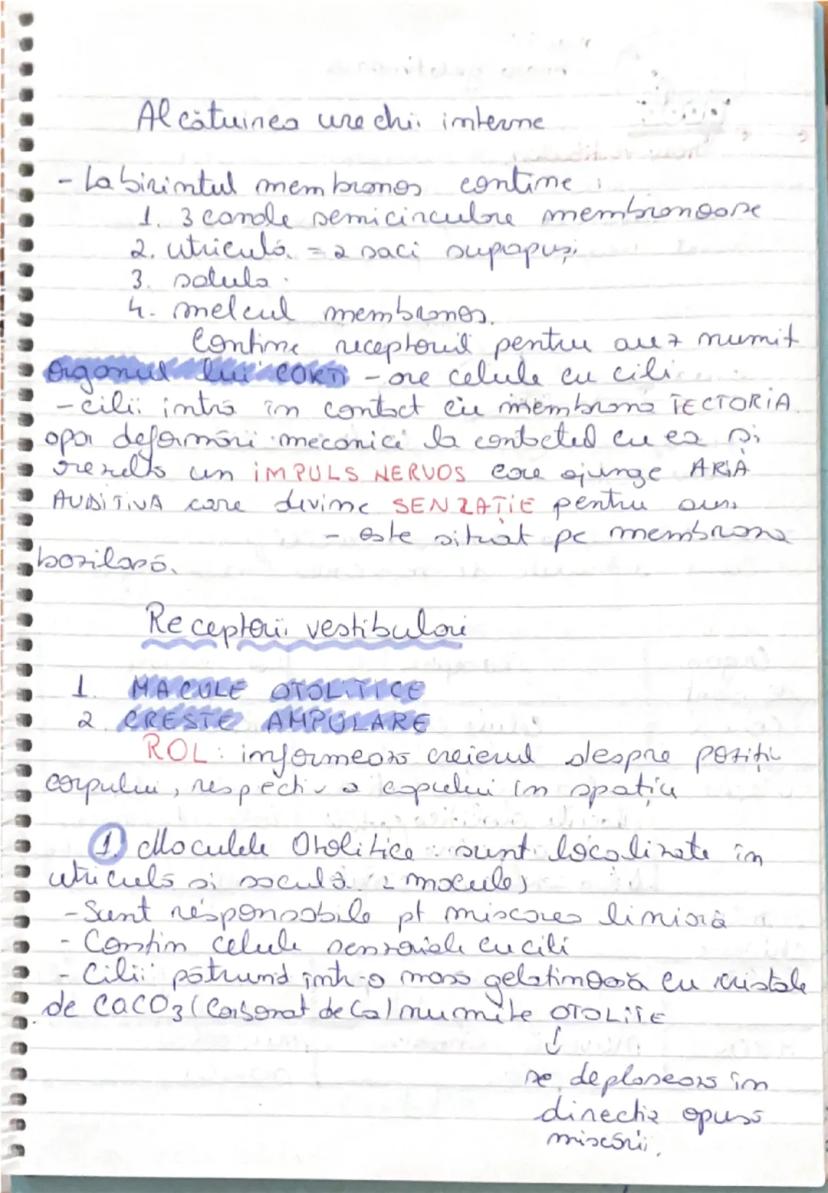 Alcătuirea urechii interne
- Labirintul membranos contine :
1. 3 canale semicirculare membranoase
2. utriculă = 2 saci suprapuși
3. saculă.
4. melcul membranos.
Contine receptorul pentru auz numit
Organul lui CORTI - are celule cu cili
- cilii intră în contact cu membrana TECTORIA
apar deformări mecanici la contactul cu ea și
rezultă un IMPULS NERVOS care ajunge ARIA
AUDITIVA care divine SENZAȚIE pentru auz.
- este situat pe membrana
bazilară.
Receptorii vestibulari
1. MACULE OTOLITICE
2. CRESTE AMPULARE
ROL : informează creierul despre poziti
corpului, respectiv a capului în spațiu
1. Maculele Otolitice sunt localizate în
utriculă si saculă 2 macule)
- Sunt responsabile pt miscarea liniară
- Contin celule senzoriale cu cili
- Cilii pătrund într-o masa gelatinoasă cu cristale
de CaCO3 (Carbonat de Ca) numite OTOLITE
↓
se deplasează în
directie opusă
miscării.